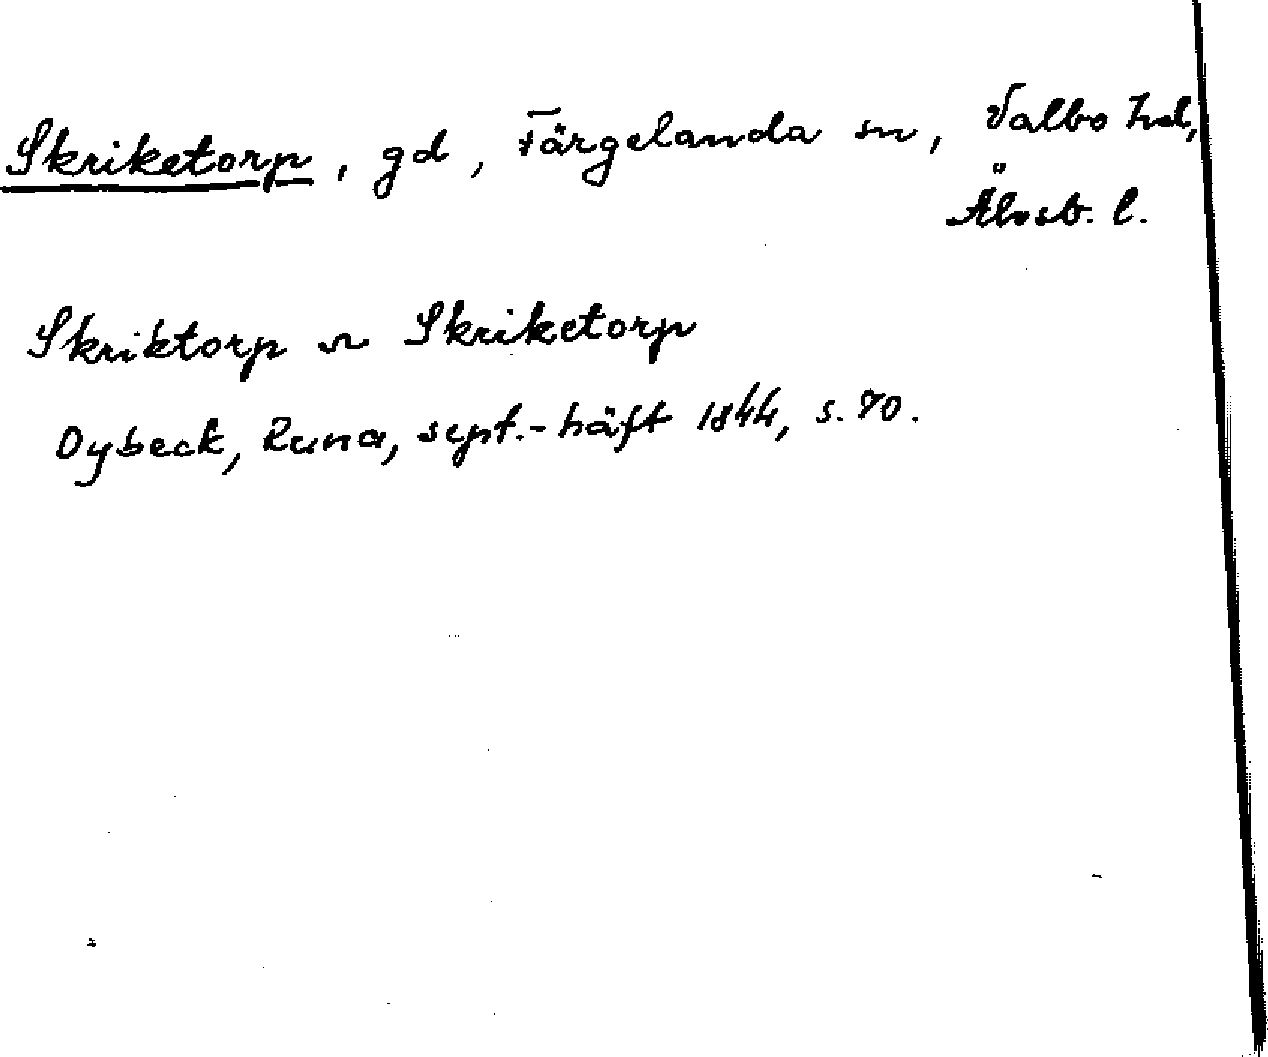 Skriketorp, gd, Färgelanda sn, Valbo hd,
Älvsb. l.
Skriktorp ~ Skriketorp
Dybeck, Runa, sept.-häft 1844, s. 70.